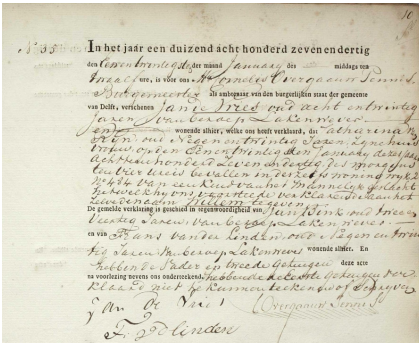 10
N° 35 In het jaar een duizend acht honderd zevenendertig
den Eenentwintigsten der maand January des middags ten
twaalf ure, is voor ons Mr Cornelis Overgaauw Pennis
Burgemeester als ambtenaar van den burgerlijken staat der gemeente
van Delft, verschenen Jan de Vries oud acht en twintig
Jaren van beroep Lakenwever
wonende alhier, welke ons heeft verklaard, dat Catharina
Rijn oud Negenentwintig Jaren, Zijne huis
vrouw, op den Eenentwintigsten January dezes jaars
Achttienhonderd Zevenendertig des morgens
ten vier ure is bevallen in derzelver woning wijk 2
N° 484 van een Kind van het Mannelijk geslacht
hetwelk hij ons vertoonde verklarende aan het
zelve den naam Willem te geven
De gemelde verklaring is geschied in tegenwoordigheid van Jan Vink oud twee en
Veertig Jaren van beroep Lakenwever
en van Frans van der Linden oud Negenentwin
tig Jaren van beroep Lakenwever wonende alhier. En
hebben de Vader en tweede getuigen deze acte
na voorlezing nevens ons onderteekend, hebbende de eerste getuigen ver
klaard niet te kunnen teekenen of Schrijven
Jan de Vries Overgaauw Pennis
F. v. Linden